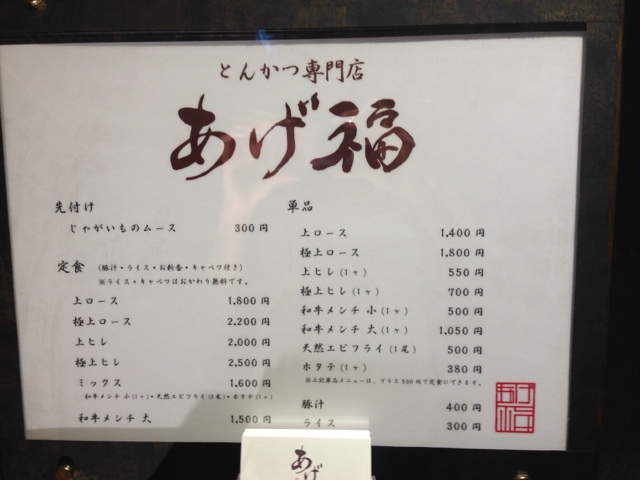 とんかつ専門店
あげ福
先付け
じゃがいものムース 300円
定食 (豚汁・ライス・お新香・キャベツ付き)
※ライス・キャベツはおかわり無料です。
上ロース 1,800円
極上ロース 2,200円
上ヒレ 2,000円
極上ヒレ 2,500円
ミックス 1,600円
和牛メンチ 小(1ヶ)・天然エビフライ(1尾)・ホタテ(1ヶ)
和牛メンチ 大 1,500円
単品
上ロース 1,400円
極上ロース 1,800円
上ヒレ(1ヶ) 550円
極上ヒレ(1ヶ) 700円
和牛メンチ 小(1ヶ) 500円
和牛メンチ 大(1ヶ) 1,050円
天然エビフライ(1尾) 500円
ホタテ(1ヶ) 380円
※上記単品メニューは、プラス500円で定食にできます。
豚汁 400円
ライス 300円
あげ